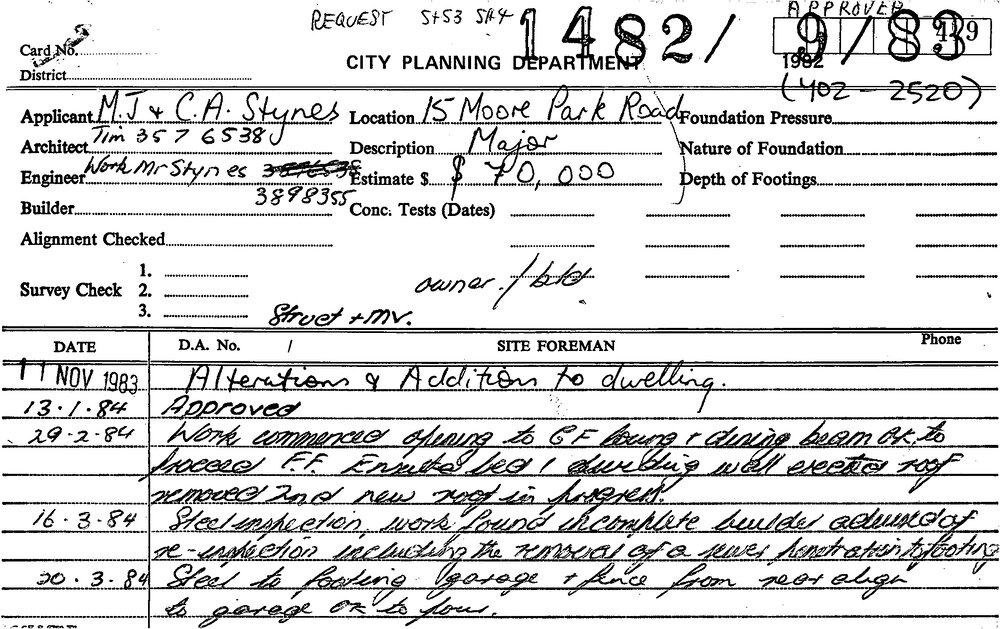 REQUEST 5453 SA4 1482/9/83 APPROVED 449
Card No.
CITY PLANNING DEPARTMENT 1982
District
(402 - 2520)
Applicant M.J & C.A. Stynes Location 15 Moore Park Road Foundation Pressure
Architect Tim 357 6538 Description Major Nature of Foundation
Engineer Work Mr Stynes Estimate $ $ 70,000 Depth of Footings
Builder 3898355 Conc. Tests (Dates)
Alignment Checked
1.
Survey Check 2. owner / bld
3. Struct + mv.
DATE D.A. No. / SITE FOREMAN Phone
11 NOV 1983 Alterations & Additions to dwelling.
13.1.84 Approved
29.2.84 Work commenced opening to G F living + dining beam OK to
proceed F.F. Ensuite bed 1 dividing wall erected roof
removed and new roof in progress.
16.3.84 Steel inspection, work found incomplete builder advised of
re-inspection including the removal of a sewer penetration to footing
20.3.84 Steel to footing garage + fence from rear align
to garage OK to pour.